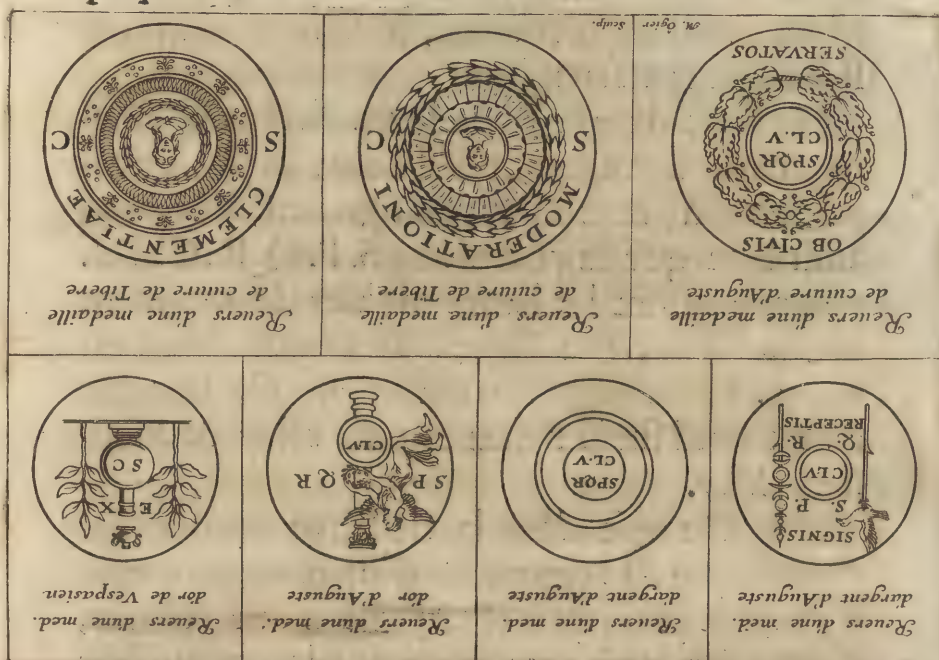 Reuers dune med.
dargent d'Auguste
SIGNIS
S. P.
CLV
Q. R.
RECEPTIS
Reuers dune med.
dargent d'Auguste
SPQR
CL·V
Reuers dune med.
d'or d'Auguste
S P Q R
CLV
Reuers dune med.
d'or de Vespasien
EX
S C
Reuers d'une medaille
de cuiure d'Auguste
OB CIVIS
SPQR
CL.V
SERVATOS
Reuers d'une medaille
de cuiure de Tibere
MODERATIONI
S C
Reuers d'une medaille
de cuiure de Tibere
CLEMENTIAE
S C
M. Ogier Sculp.